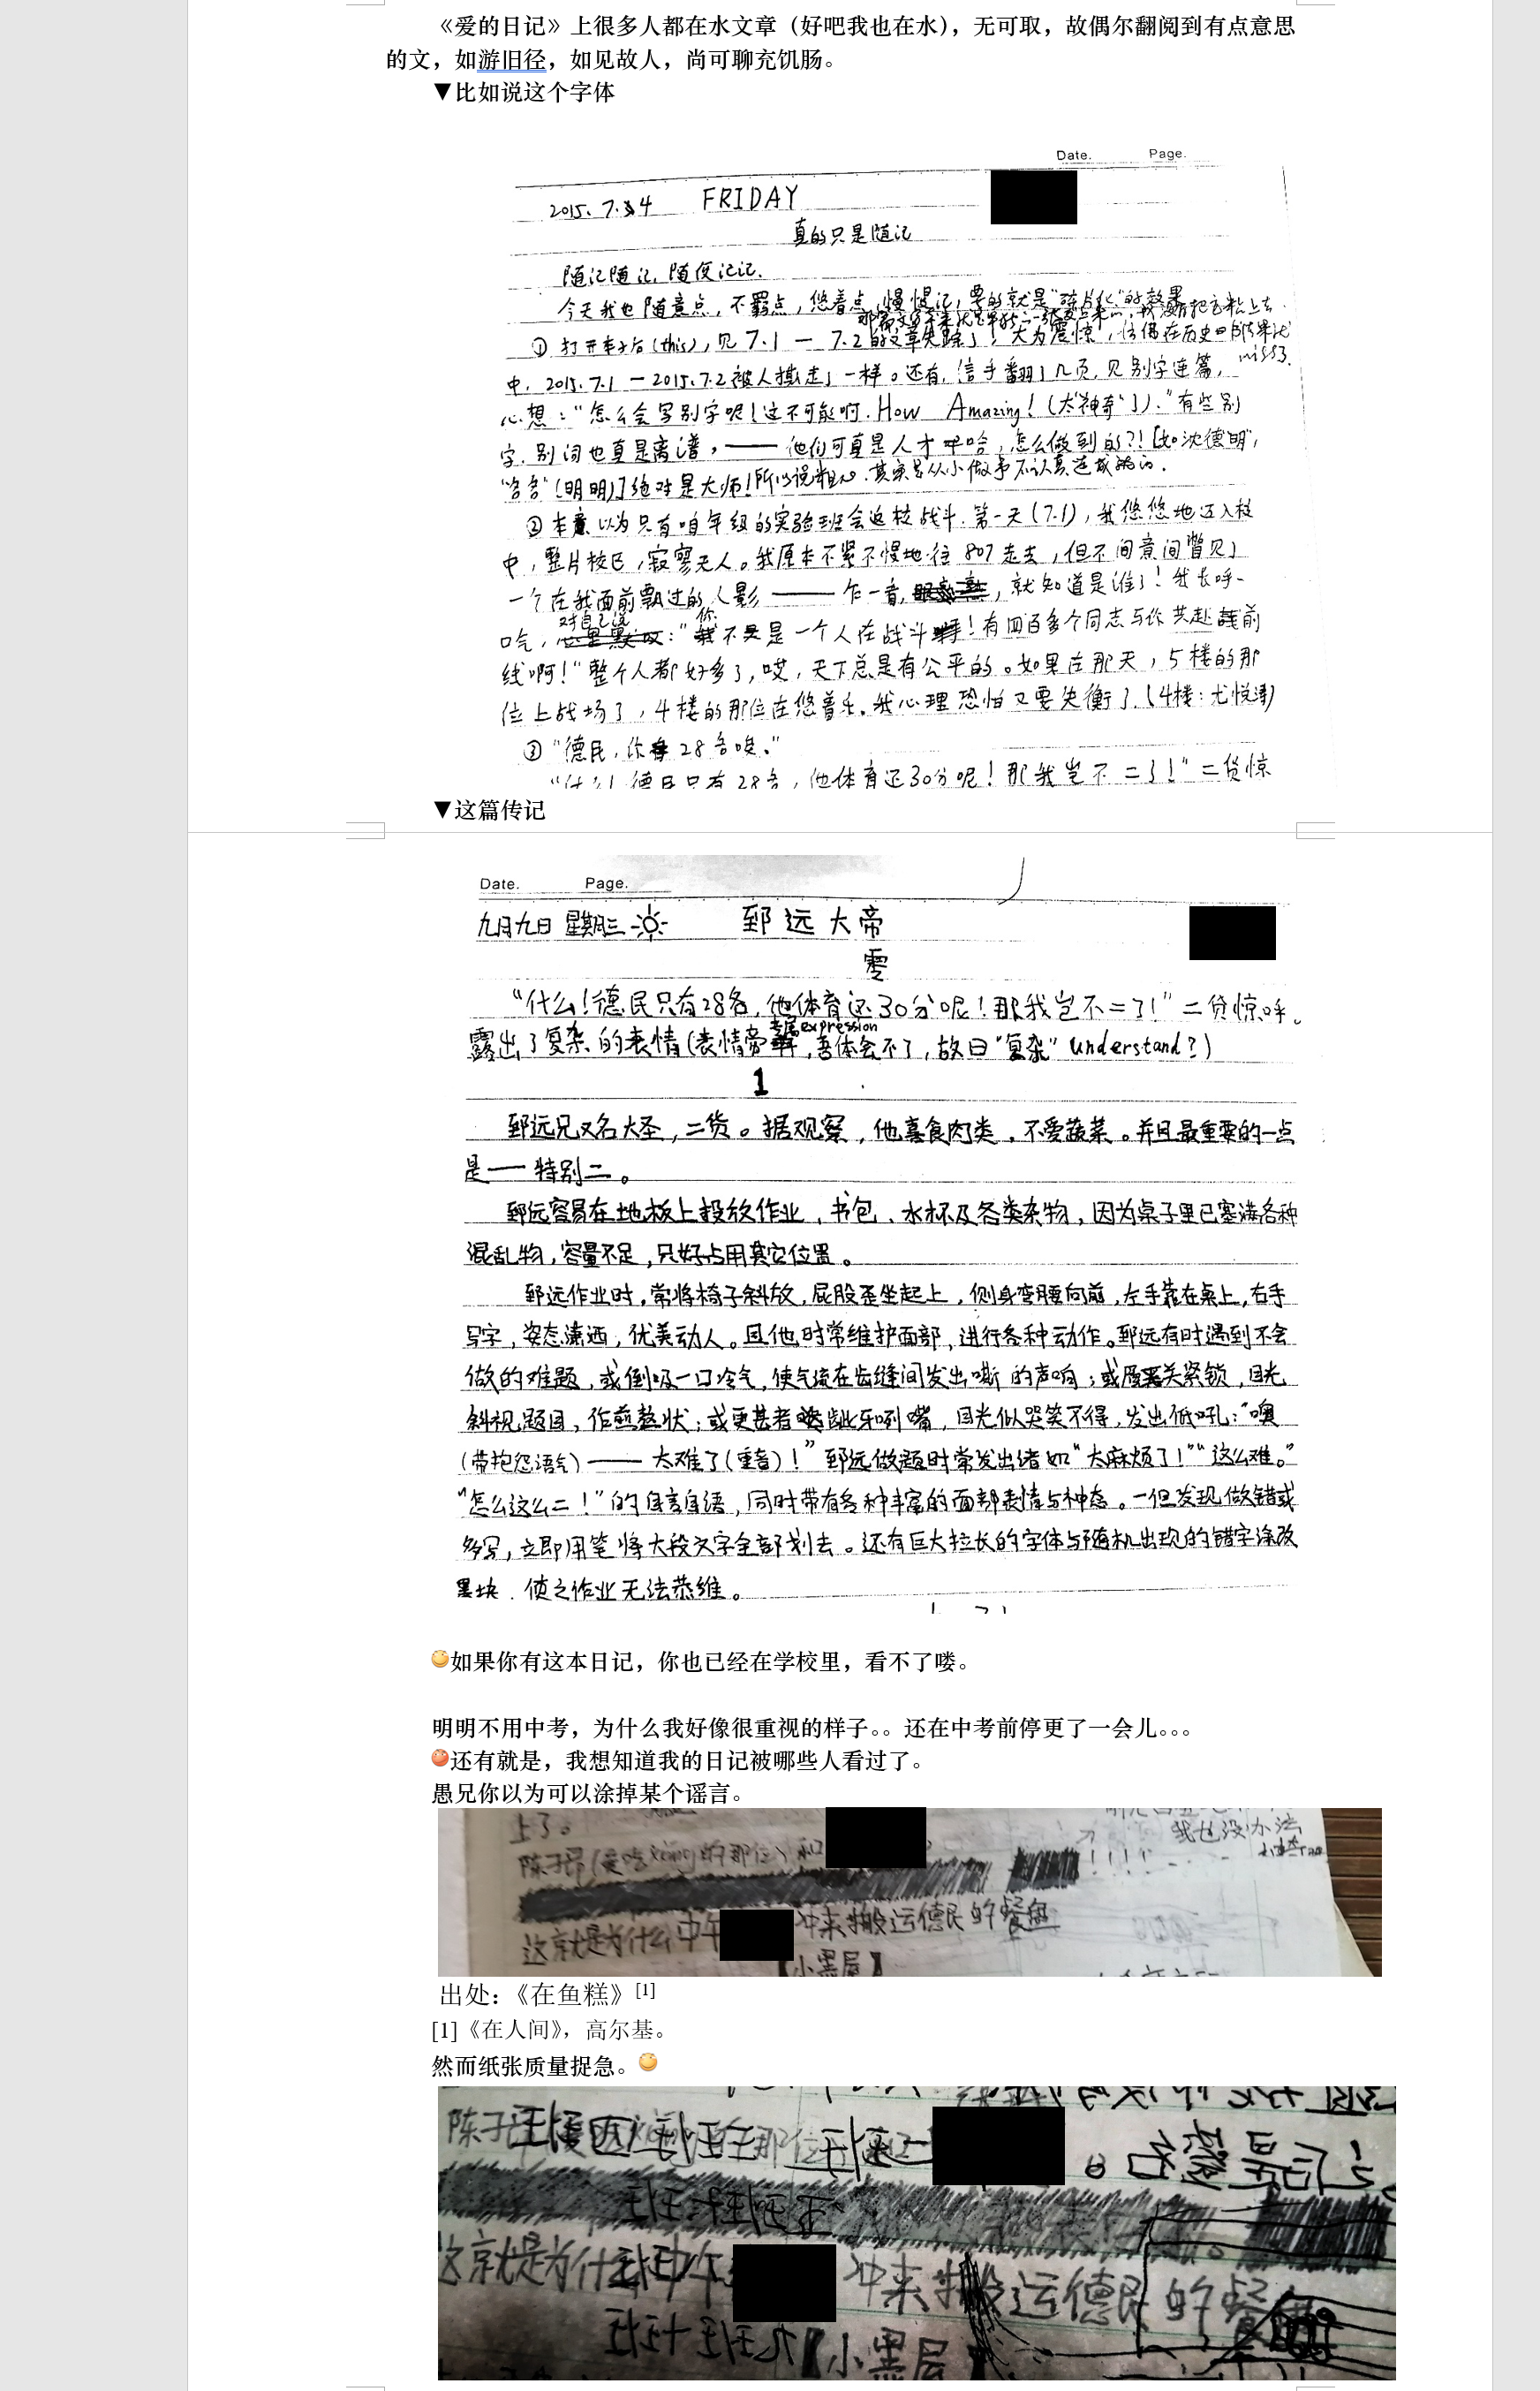 《爱的日记》上很多人都在水文章（好吧我也在水），无可取，故偶尔翻阅到有点意思
的文，如游旧径，如见故人，尚可聊充饥肠。
▼比如说这个字体
Date. Page.
2015. 7. 4 FRIDAY
真的只是随记
随记随记，随便记记.
今天我也随意点，不羁点，悠着点，慢慢记，要的就是“碎片化”的效果
①打开本子后(this)，见7.1—7.2的文章失踪了！大为震惊，恰偶在历史
miss了.
中，2015.7.1—2015.7.2被人撕走了一样。还有，信手翻了几页，见别字连篇，
心想：“怎么会写别字呢！这不可能啊. How Amazing！(太“神奇”了).”有些别
字.别词也真是离谱，——他们可真是人才呼哈，怎么做到的?!［如沈德“明”，
“名名”(明明)］绝对是大师！所以说粗心.其实是从小做事不认真造成的.
②本意以为只有咱年级的实验班会返校战斗.第一天(7.1)，我悠悠地迈入校
中，整片校区，寂寥无人。我原本不紧不慢地往807走去，但不间意间瞥见了
一个在我面前飘过的人影——乍一看，，就知道是谁了！我长呼一
对自己说 你
口气，：“不是一个人在战斗！有四百多个同志与你共赴前
线啊！”整个人都好多了，哎，天下总是有公平的。如果在那天，5楼的那
位上战场了，4楼的那位在悠着乐.我心理恐怕又要失衡了.(4楼：尤悦)
③“德民，你有28名唉.”
“什么！德民只有28名，他体育还30分呢！那我岂不二了！”二货惊
▼这篇传记
Date. Page.
九月九日 星期三 郅远大帝
零
“什么！德民只有28名，他体育还30分呢！那我岂不二了！”二货惊呼。
expression
露出了复杂的表情(表情帝，吾体会不了，故曰“复杂” understand？)
1
郅远兄又名大圣，二货。据观察，他喜食肉类，不爱蔬菜。并且最重要的一点
是——特别二。
郅远容易在地板上投放作业，书包、水杯及各类杂物，因为桌子里已塞满各种
混乱物，容量不足，只好占用其它位置。
郅远作业时，常将椅子斜放，屁股歪坐起上，侧身弯腰向前，左手靠在桌上，右手
写字，姿态潇洒，优美动人。且他时常维护面部，进行各种动作。郅远有时遇到不会
做的难题，或倒吸一口冷气，使气流在齿缝间发出嘶的声响；或眉关紧锁，目光
斜视题目，作煎熬状；或更甚者龇牙咧嘴，目光似哭笑不得，发出低吼：“噢
(带抱怨语气)——太难了(重音)！”郅远做题时常发出诸如“太麻烦了！”“这么难。”
“怎么这么二！”的自言自语，同时带有各种丰富的面部表情与神态。一但发现做错或
多写，立即用笔将大段文字全部划去。还有巨大拉长的字体与随机出现的错字涂改
黑块.使之作业无法恭维。
如果你有这本日记，你也已经在学校里，看不了喽。
明明不用中考，为什么我好像很重视的样子。。还在中考前停更了一会儿。。。
还有就是，我想知道我的日记被哪些人看过了。
愚兄你以为可以涂掉某个谣言。
上了。
我也没办法
陈子昂(爱吃xiang的那位)和
这就是为什么中午 冲来搬运德民的餐盘
【小黑屋】
出处：《在鱼糕》[1]
[1]《在人间》，高尔基。
然而纸张质量捉急。
陈子 那位
这就是为什 中午 冲来搬运德民的餐
【小黑屋】